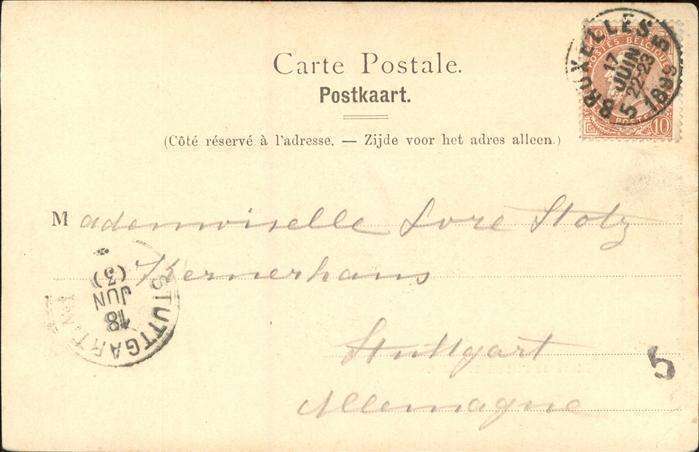 Carte Postale.
Postkaart.
(Côté réservé à l'adresse. — Zijde voor het adres alleen.)
POSTES BELGIQUE
10
BRUXELLES 5
17
JUIN
22-23
5
Mademoiselle Lore Stolz
Kernerhaus
Stuttgart
Allemagne
5
STUTTGART
18
JUN
(3)